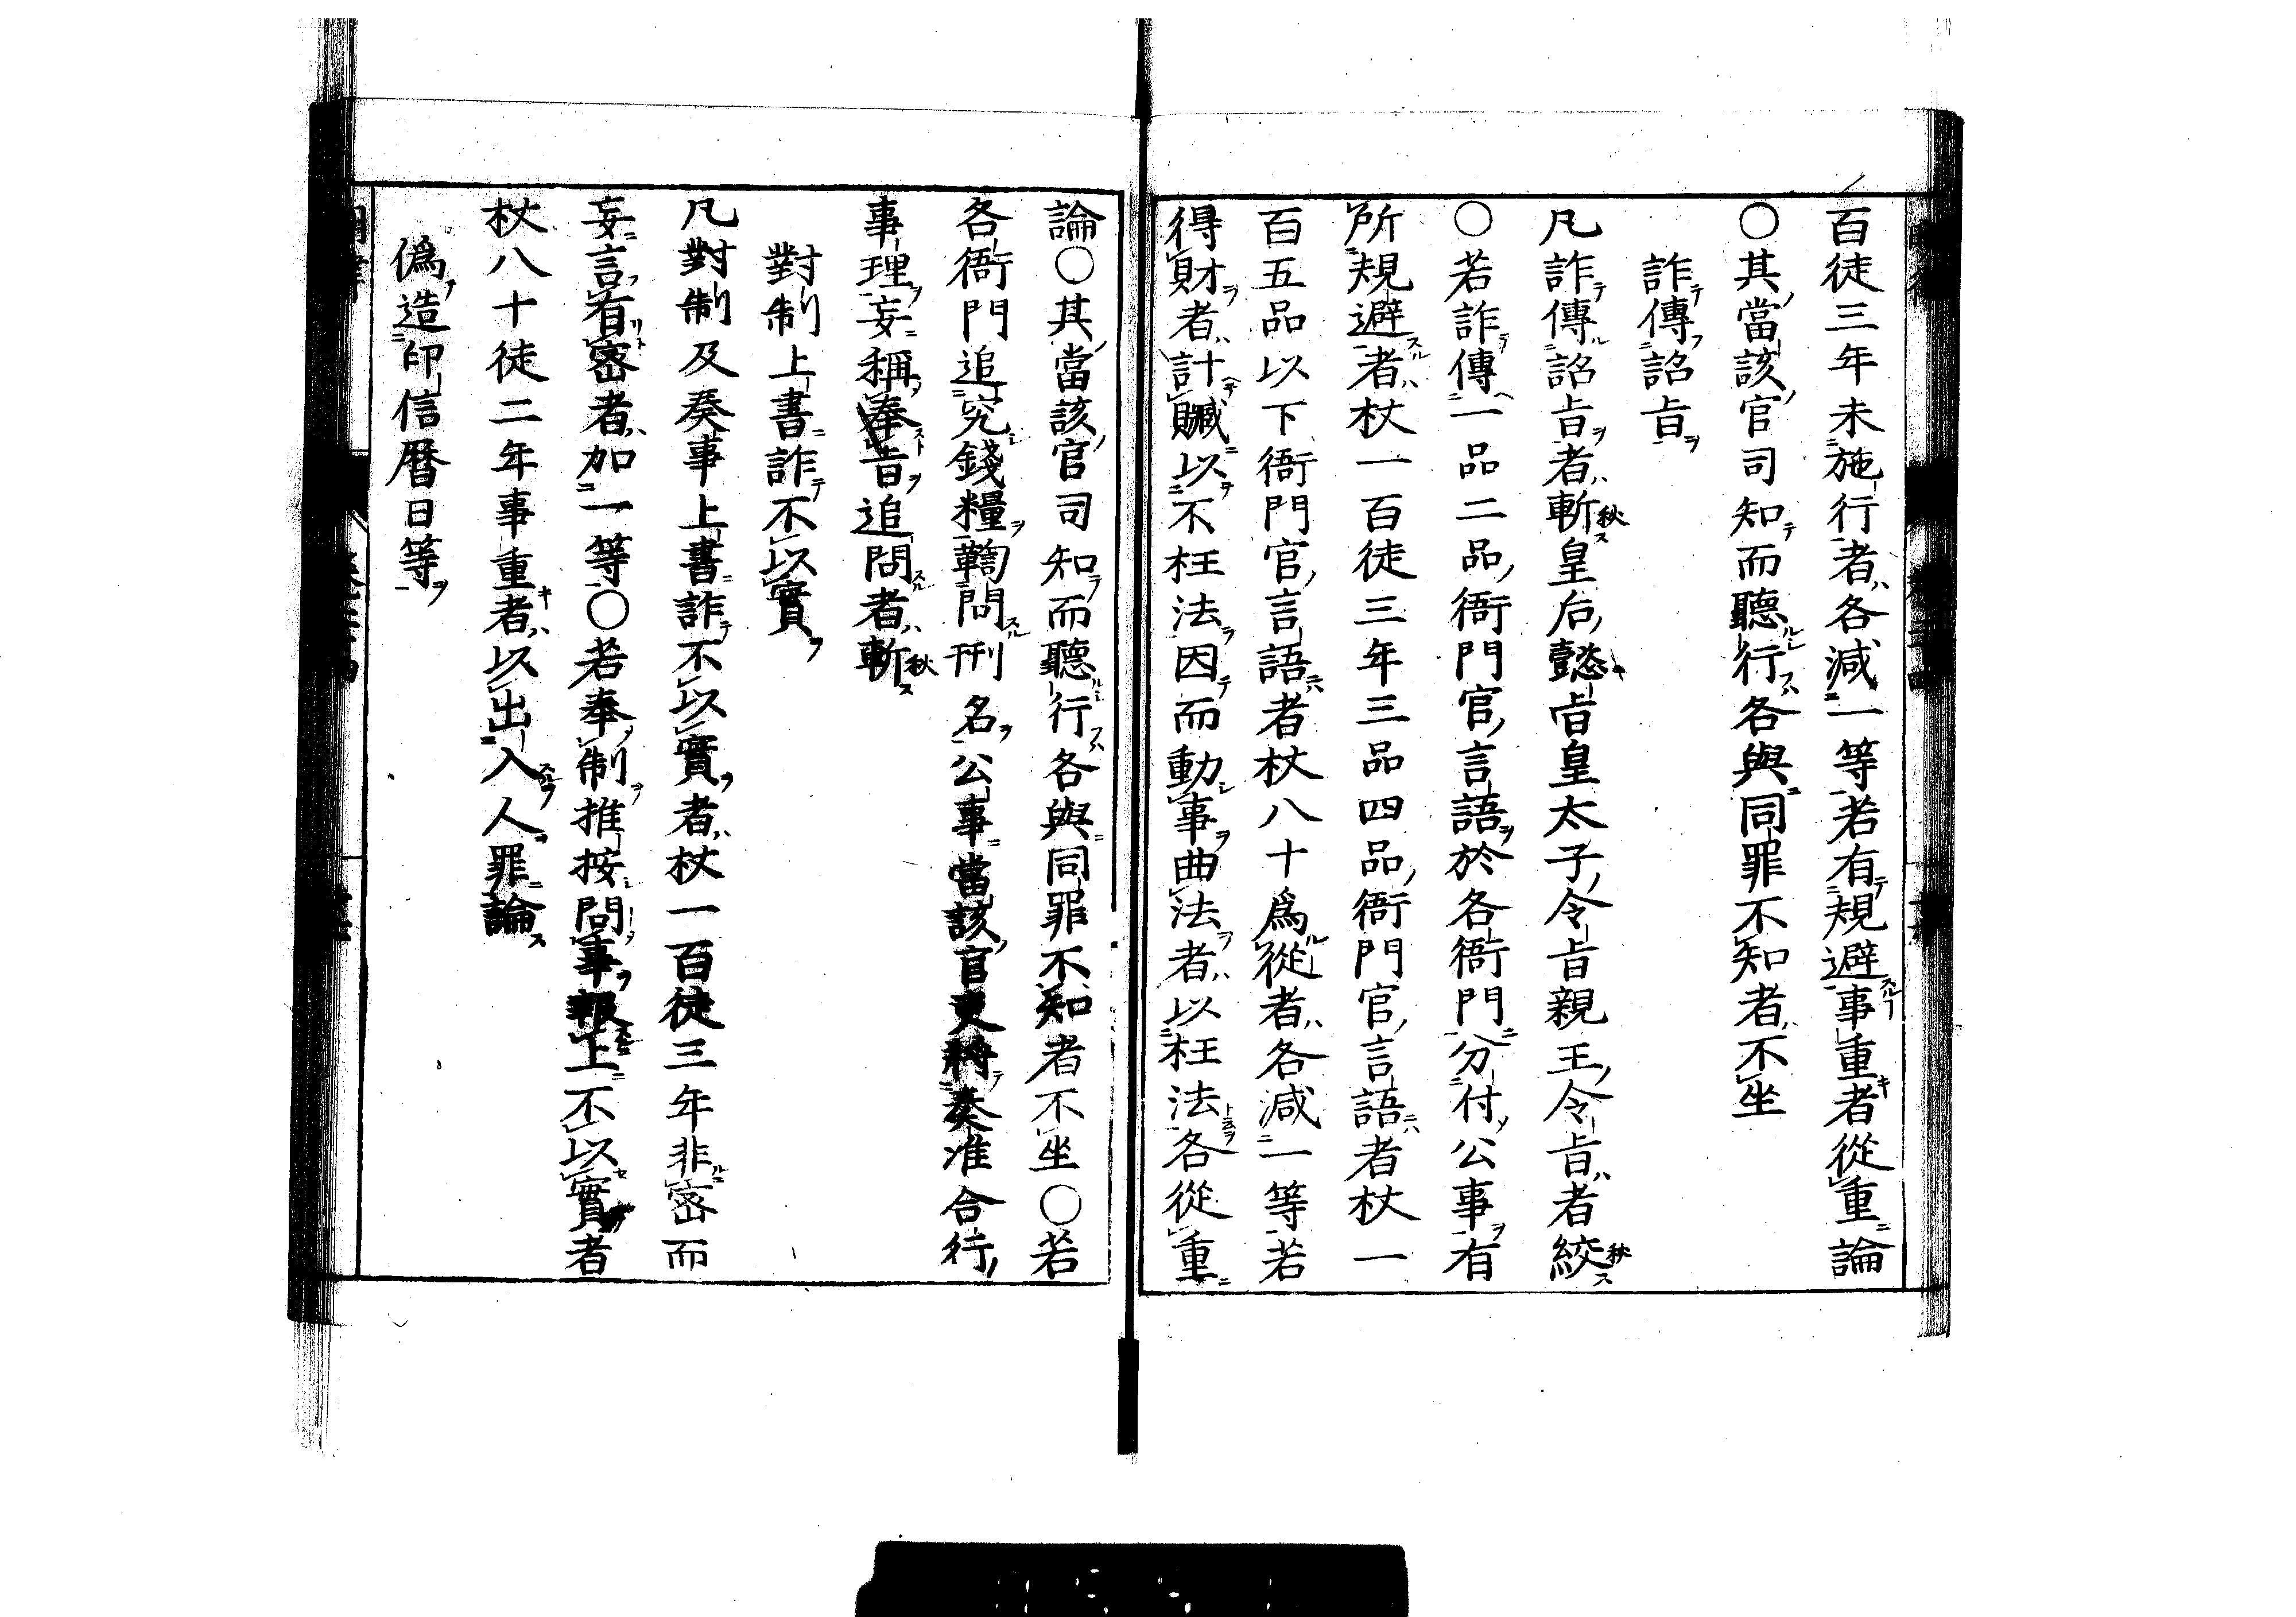 百徒三年未施行者各減一等若有規避事重者從重論
〇其當該官司知而聽行各與同罪不知者不坐
詐傳詔旨
凡詐傳詔旨者斬秋皇后懿旨皇太子令旨親王令旨者絞秋
〇若詐傳一品二品衙門官言語於各衙門分付公事有
所規避者杖一百徒三年三品四品衙門官言語者杖一
百五品以下衙門官言語者杖八十爲從者各減一等若
得財者計贓以不枉法因而動事曲法者以枉法各從重
論〇其當該官司知而聽行各與同罪不知者不坐〇若
各衙門追究錢糧鞫問刑名公事當該官吏將奏准合行
事理妄稱奉旨追問者斬秋
對制上書詐不以實
凡對制及奏事上書詐不以實者杖一百徒三年非密而
妄言有密者加一等〇若奉制推按問事報上不以實者
杖八十徒二年事重者以出入人罪論
僞造印信曆日等